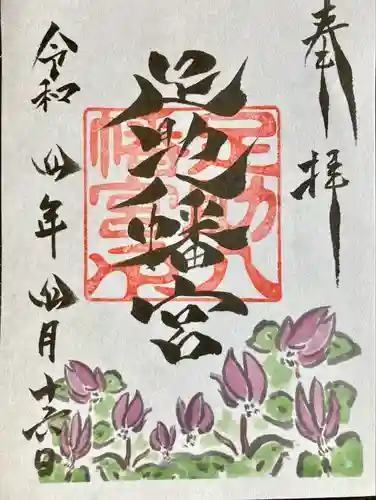 奉拝
足助八幡宮
足助八幡宮
令和四年四月十六日